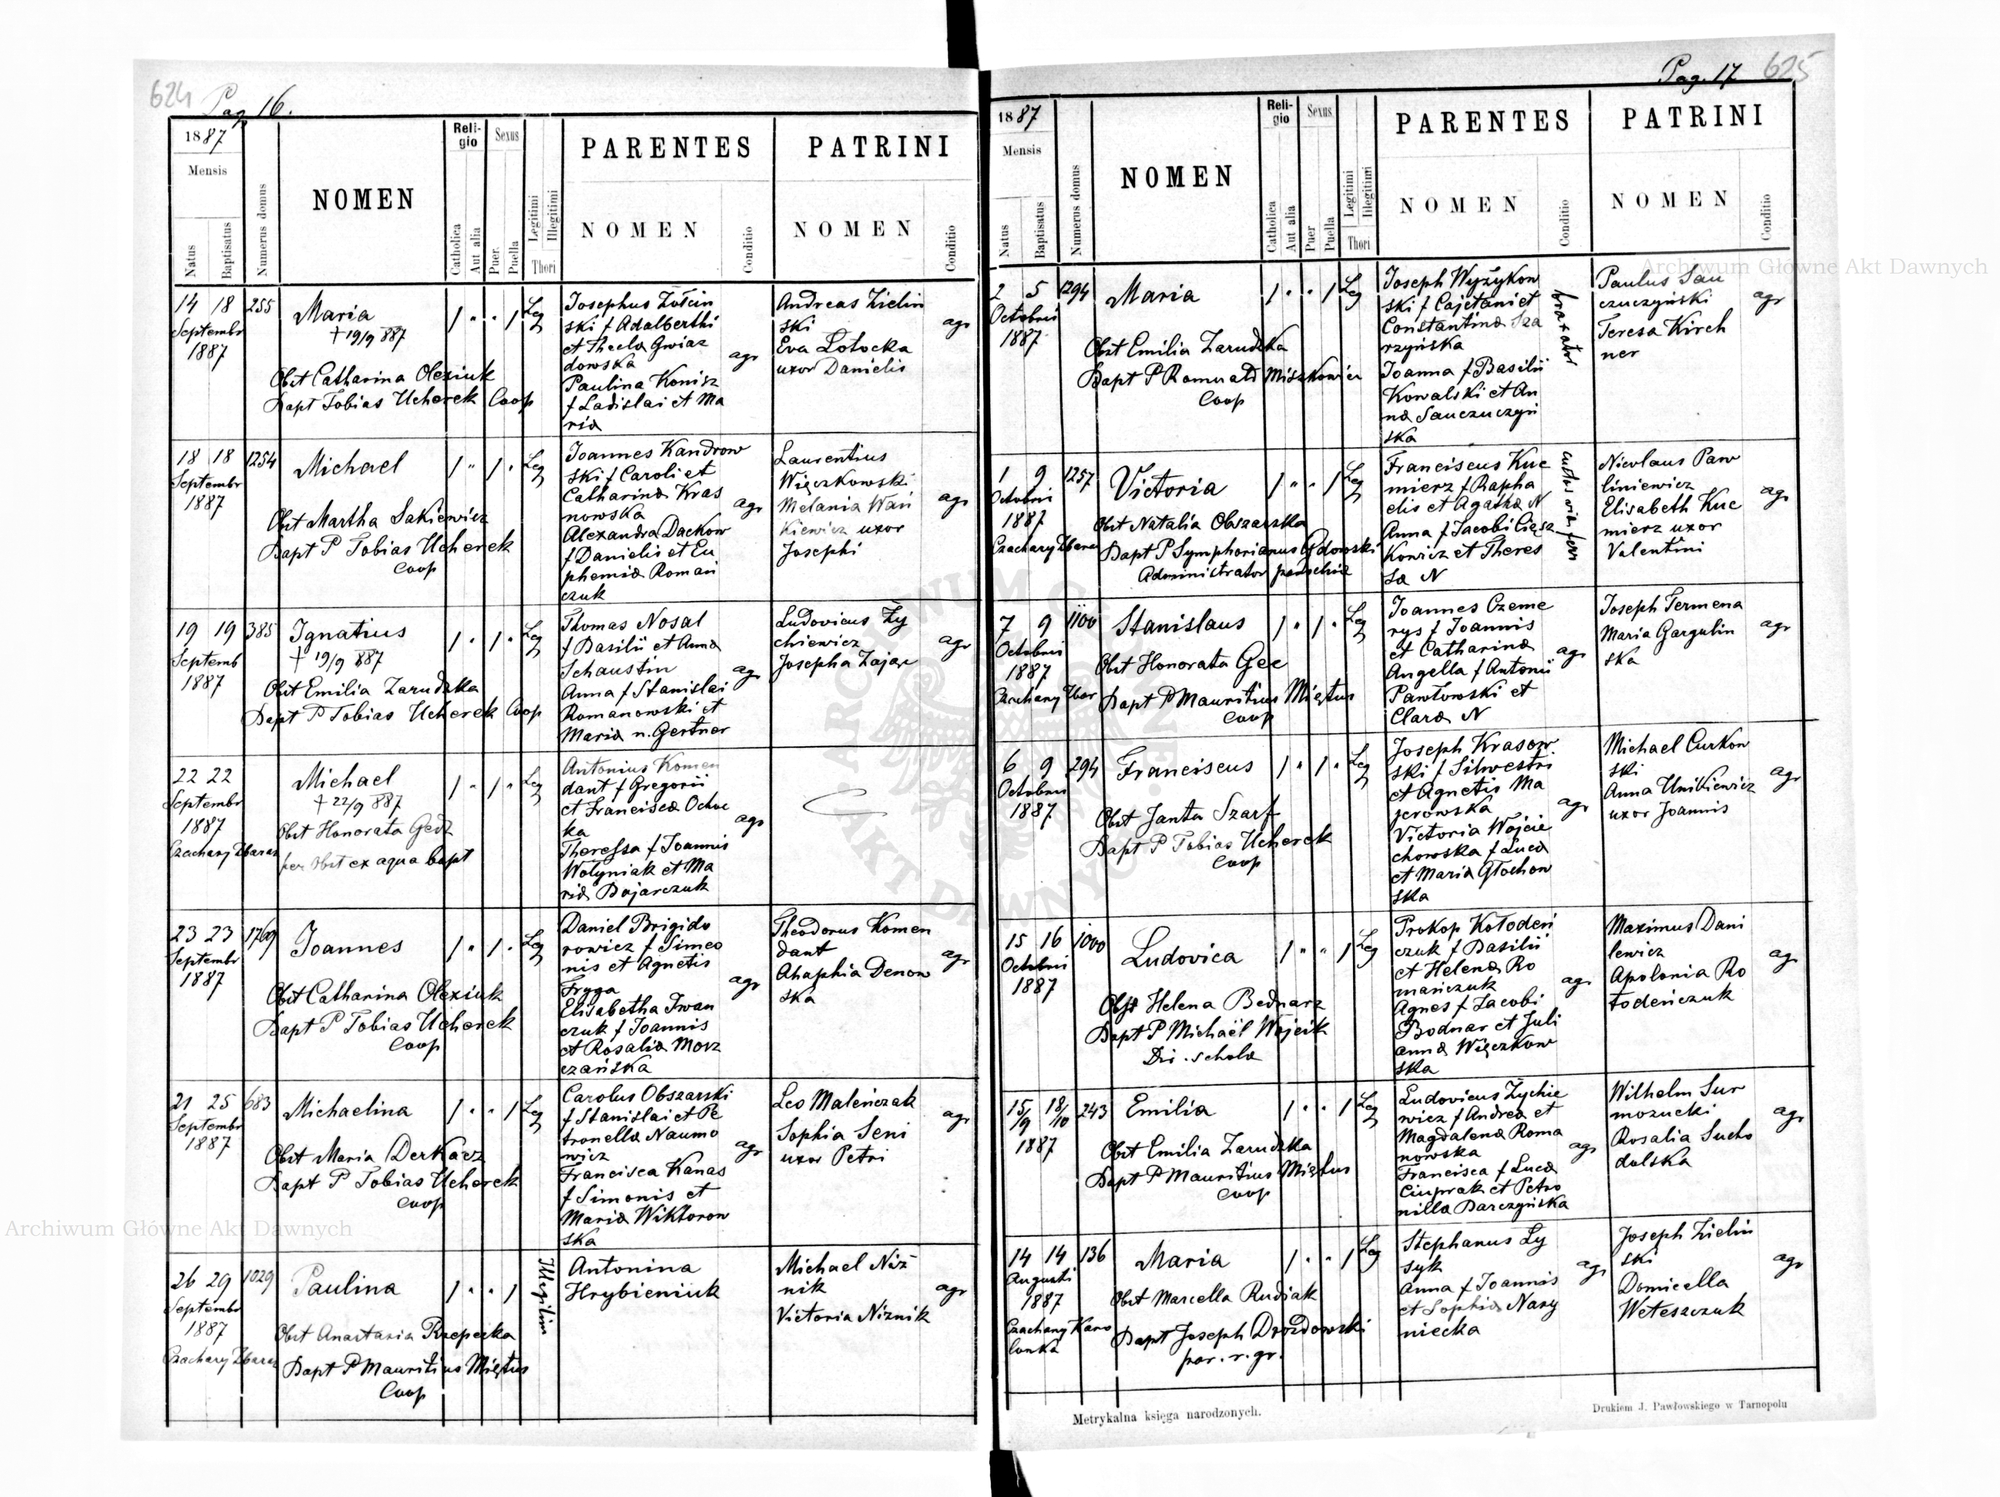 624 Pag 16.
1887
Mensis
Natus
Baptisatus
Numerus domus
NOMEN
Reli-
gio
Catholica
Aut alia
Sexus
Puer.
Puella
Legitimi
Illegitimi
Thori
PARENTES
NOMEN
Conditio
PATRINI
NOMEN
Conditio
14 18 255
Septembr
1887
Maria
† 19/9 887
Obst Catharina Olexiuk
Bapt Tobias Ucherek Coop
/ " " / Leg
Josephus Zołcin
ski f Adalberthi
et Thecla Gwiaz
dowska
Paulina Konisz
f Ladislai et Ma
ria
agr
Andreas Zielin
ski
Eva Łotocka
uxor Danielis
agr
18 18 1254
Septembr
1887
Michael
Obst Martha Sakiewicz
Bapt P Tobias Ucherek
Coop
/ " / " Leg
Joannes Kandrow
ski f Caroli et
Catharina Kras
nowska
Alexandra Dackow
f Danielis et Eu
phemia Roman
czuk
agr
Laurentius
Więczkowski
Melania Wań
kiewicz uxor
Josephi
agr
19 19 385
Septemb
1887
Ignatius
† 19/9 887
Obst Emilia Zarudzka
Bapt P Tobias Ucherek Coop
/ " / " Leg
Thomas Nosal
f Basilii et Anna
Schaustin
Anna f Stanislai
Romanowski et
Maria n. Gertner
agr
Ludovicus Zy
chiewicz
Josepha Zając
agr
22 22
Septembr
1887
Czachary Zbaraz
Michael
† 22/9 887
Obst Honorata Gedz
per Obst ex aqua bapt
/ " / " Leg
Antonius Komen
dant f Gregorii
et Francisca Ochoc
ka
Theressa f Joannis
Wołyniak et Ma
ria Bojarczuk
agr
23 23 1769
Septembr
1887
Joannes
Obst Catharina Olexiuk
Bapt P Tobias Ucherek
Coop
/ " / " Leg
Daniel Brigido
rowicz f Simeo
nis et Agnetis
Fryga
Elisabetha Iwan
czuk f Joannis
et Rosalia Morz
czańska
agr
Theodorus Komen
dant
Ahaphia Denow
ska
agr
21 25 683
Septembr
1887
Michaelina
Obst Maria Derkacz
Bapt P Tobias Ucherek
Coop
/ " " / Leg
Carolus Obszarski
f Stanislai et Pe
tronella Naumo
wicz
Francisca Kanas
f Simonis et
Maria Wiktorow
ska
agr
Leo Maleńczak
Sophia Seni
uxor Petri
agr
26 29 1029
Septembr
1887
Czachary Zbaraz
Paulina
Obst Anastasia Rzepecka
Bapt P Mauritius Miętus
Coop
/ " " / Illegitim
Antonina
Hrybieniuk
Michael Niż
nik
Victoria Niznik
agr
Pag. 17 625
1887
Mensis
Natus
Baptisatus
Numerus domus
NOMEN
Reli-
gio
Catholica
Aut alia
Sexus
Puer
Puella
Legitimi
Illegitimi
Thori
PARENTES
NOMEN
Conditio
PATRINI
NOMEN
Conditio
2 5 1294
Octobris
1887
Maria
Obst Emilia Zarudzka
Bapt P Romuald Miszkowicz
Coop
/ " " / Leg
Joseph Wyżykow
ski f Cajetani et
Constantina Sza
rzyńska
Joanna f Basilii
Kowalski et An
na Sauczuczyń
ska
braxator
Paulus Sau
czuczyński
Teresa Kirch
ner
agr
1 9 1257
Octobris
1887
Czachary Zbaraz
Victoria
Obst Natalia Obszarska
Bapt P Symphorianus Gdowski
Administrator parochie
/ " " / Leg
Franciscus Kuc
mierz f Rapha
elis et Agatha N
Anna f Jacobi Ciąsz
kowicz et Theres
sa N
Nicolaus Paw
liniewicz
Elisabeth Kuc
mierz uxor
Valentini
agr
7 9 1100
Octobris
1887
Czachary Zbar
Stanislaus
Obst Honorata Gec
Bapt P Mauritius Miętus
Coop
/ " / " Leg
Joannes Czeme
rys f Joannis
et Catharina
Angella f Antonii
Pawłowski et
Clara N
agr
Joseph Termena
Maria Gargulin
ska
agr
6 9 294
Octobris
1887
Franciscus
Obst Janta Szarf
Bapt P Tobias Ucherek
Coop
/ " / " Leg
Joseph Krasow
ski f Silwestri
et Agnetis Ma
jerowska
Victoria Wojcie
chowska f Luca
et Maria Głochow
ska
agr
Michael Curkow
ski
Anna Unikiewicz
uxor Joannis
agr
15 16 1000
Octobris
1887
Ludovica
Obst Helena Bednarz
Bapt P Michaël Wojcik
Dri. schola
/ " " / Leg
Prokop Kołodeń
czuk f Basilii
et Helena Ro
mańczuk
Agnes f Jacobi
Bodnar et Juli
anna Więczkow
ska
agr
Maximus Dani
lewicz
Apolonia Ko
łodeńczuk
agr
15/9 18/10 243
1887
Emilia
Obst Emilia Zarudzka
Bapt P Mauritius Miętus
Coop
/ " " / Leg
Ludovicus Zychie
wicz f Andrea et
Magdalena Roma
nowska
Francisca f Luca
Ciuprak et Petro
nilla Barczyńska
agr
Wilhelm Sur
mozucki
Rosalia Sucho
dolska
agr
14 14 136
Augusti
1887
Czachary Karo
lonka
Maria
Obst Marcella Rudiak
Bapt Joseph Drozdowski
par. r. gr.
/ " " / Leg
Stephanus Ły
syk
Anna f Joannis
et Sophia Nazy
niecka
agr
Joseph Zieliń
ski
Domicella
Weteszczuk
agr
Metrykalna księga narodzonych.
Drukiem J. Pawłowskiego w Tarnopolu
Archiwum Główne Akt Dawnych
Archiwum Główne Akt Dawnych
ARCHIWUM GŁÓWNE
AKT DAWNYCH